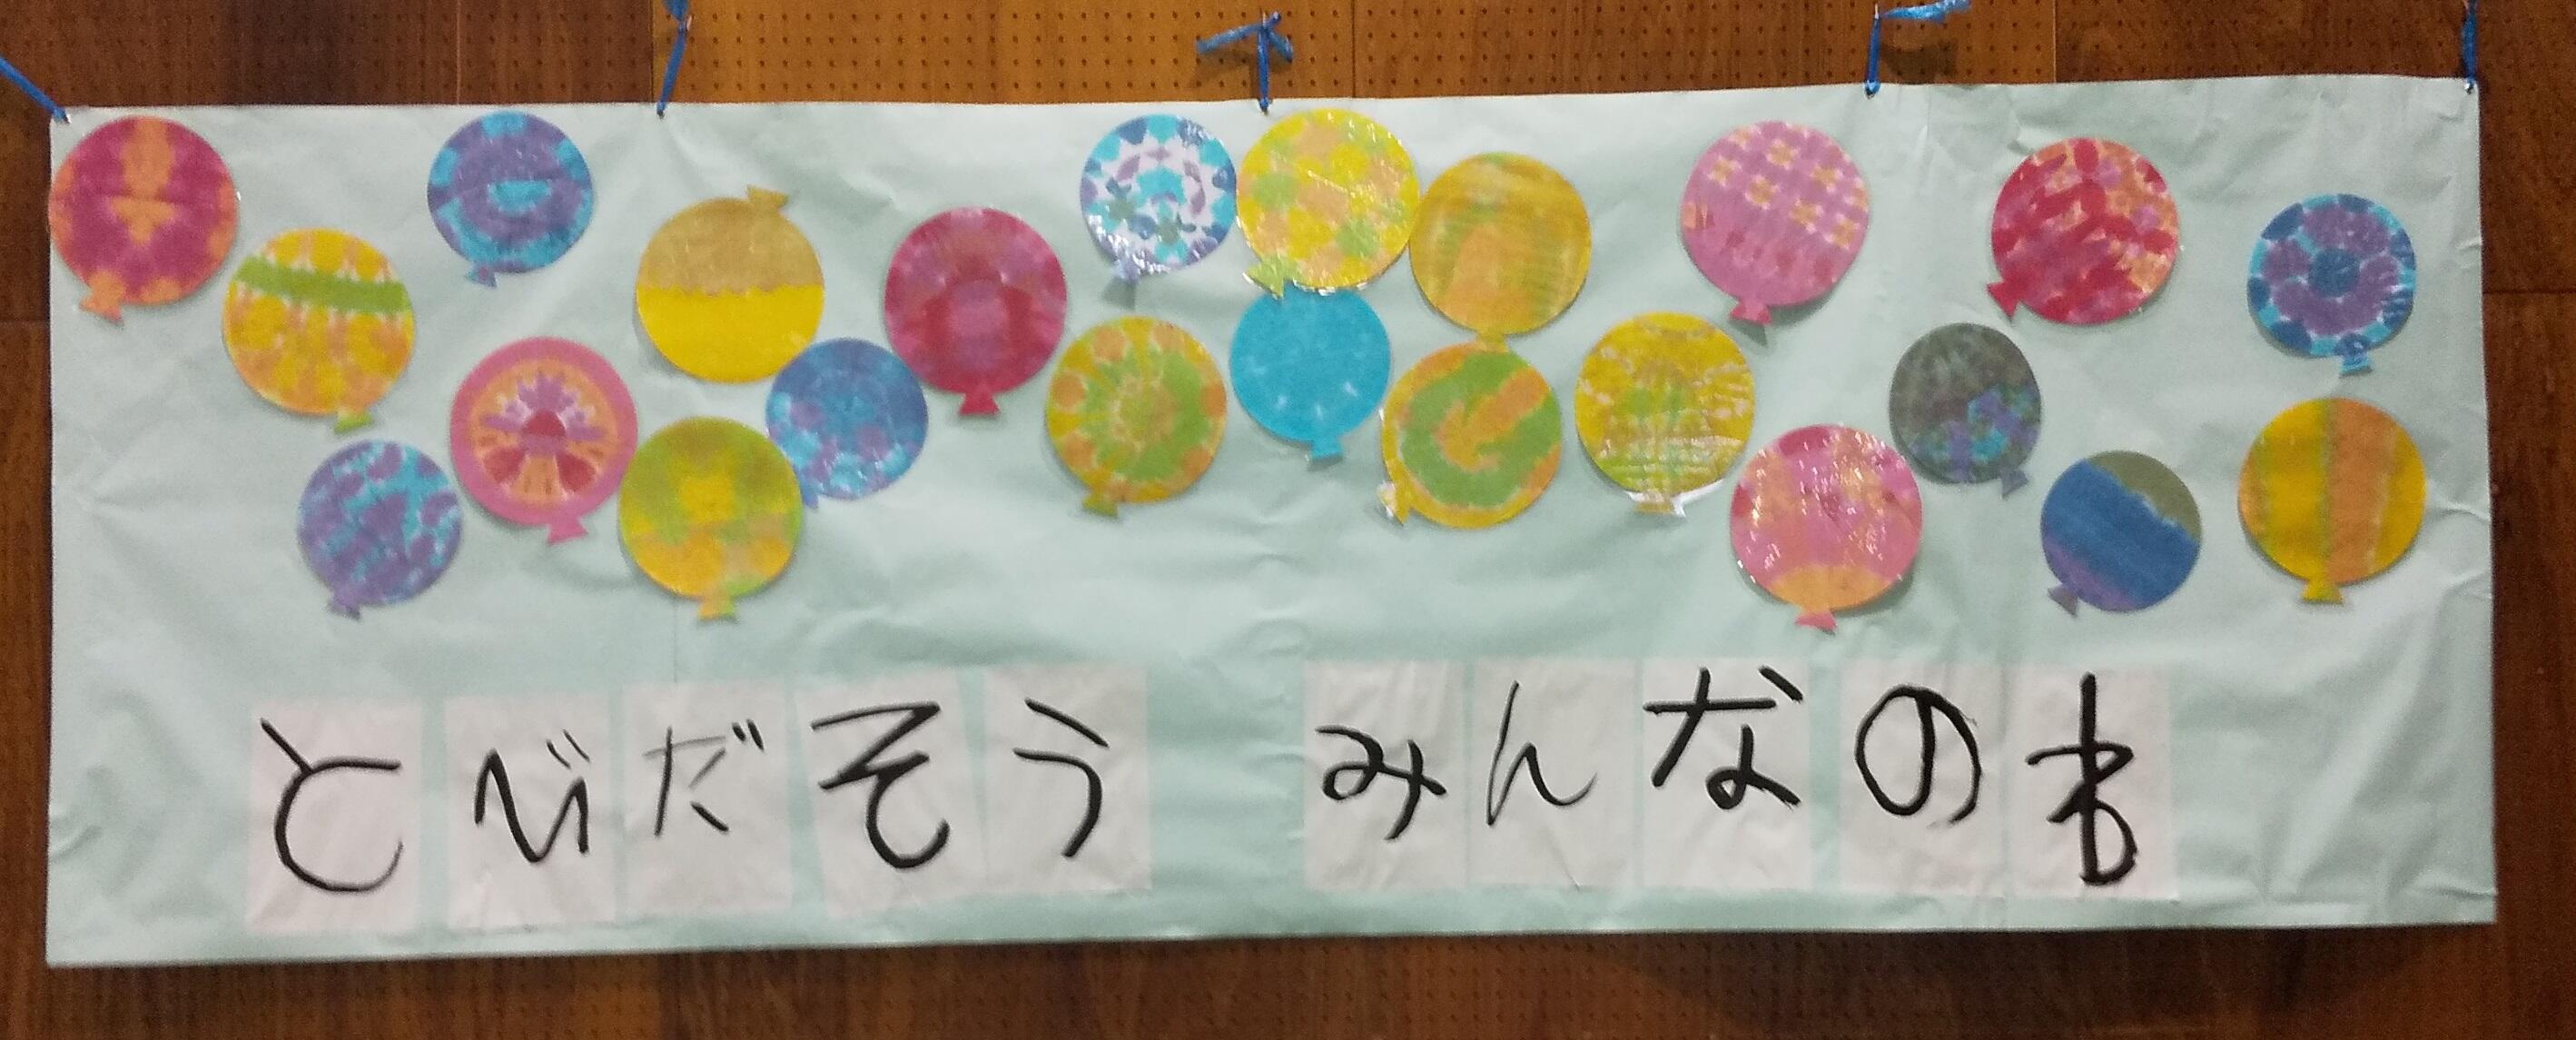 とびだそう みんなのわ